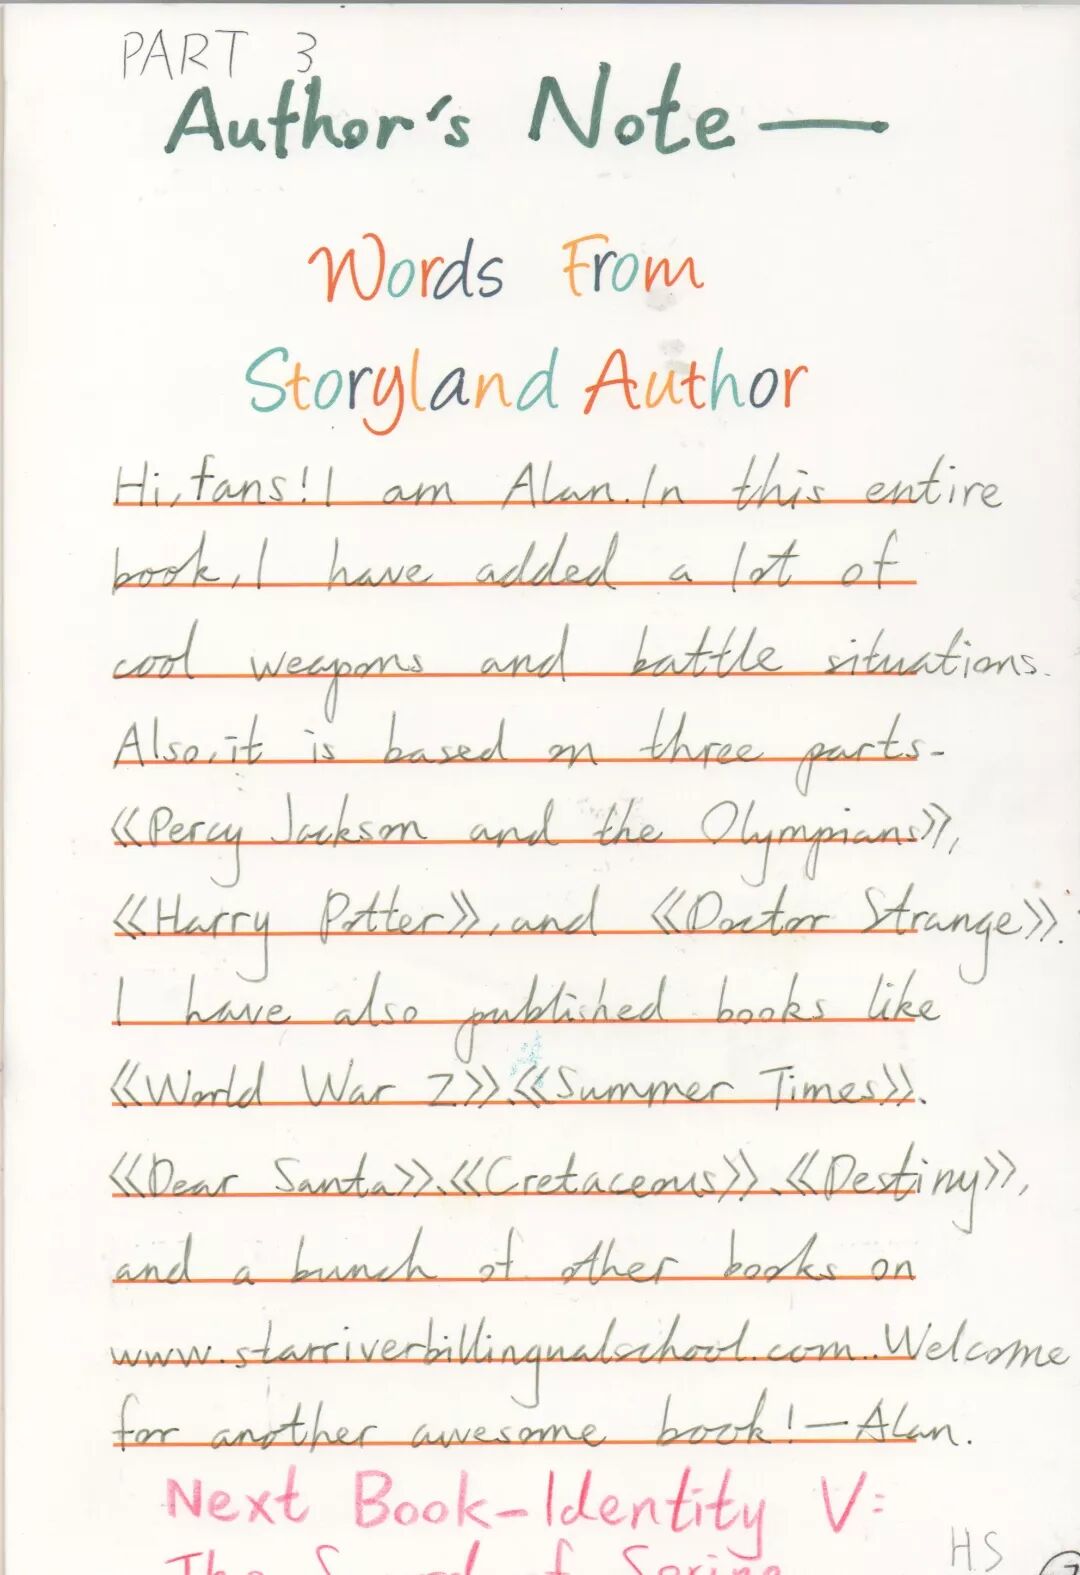 PART 3
Author's Note —
Words From
Storyland Author
Hi, fans! I am Alan. In this entire
book, I have added a lot of
cool weapons and battle situations.
Also, it is based on three parts-
《Percy Jackson and the Olympians》,
《Harry Potter》, and 《Doctor Strange》.
I have also published books like
《World War Z》、《Summer Times》、
《Dear Santa》、《Cretaceous》、《Destiny》,
and a bunch of other books on
www.starriverbillingualschool.com..Welcome
for another awesome book!—Alan.
Next Book-Identity V:
The S of Spring
H.S